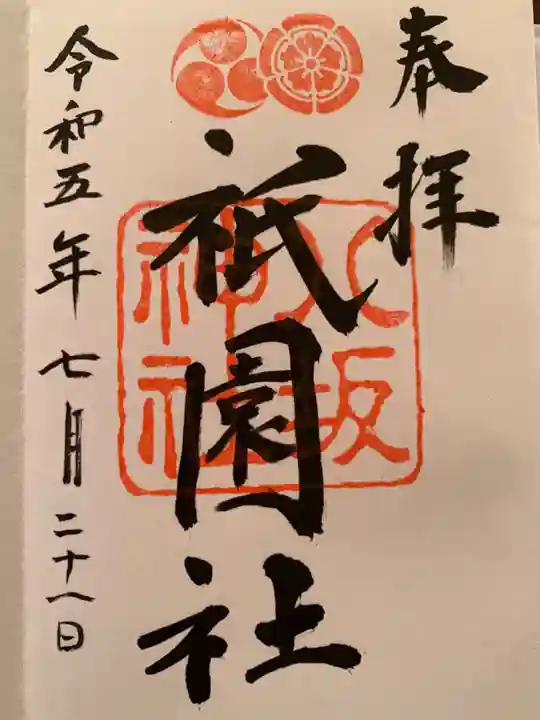 奉拝
祇園社
八坂
神社
令和五年七月二十八日